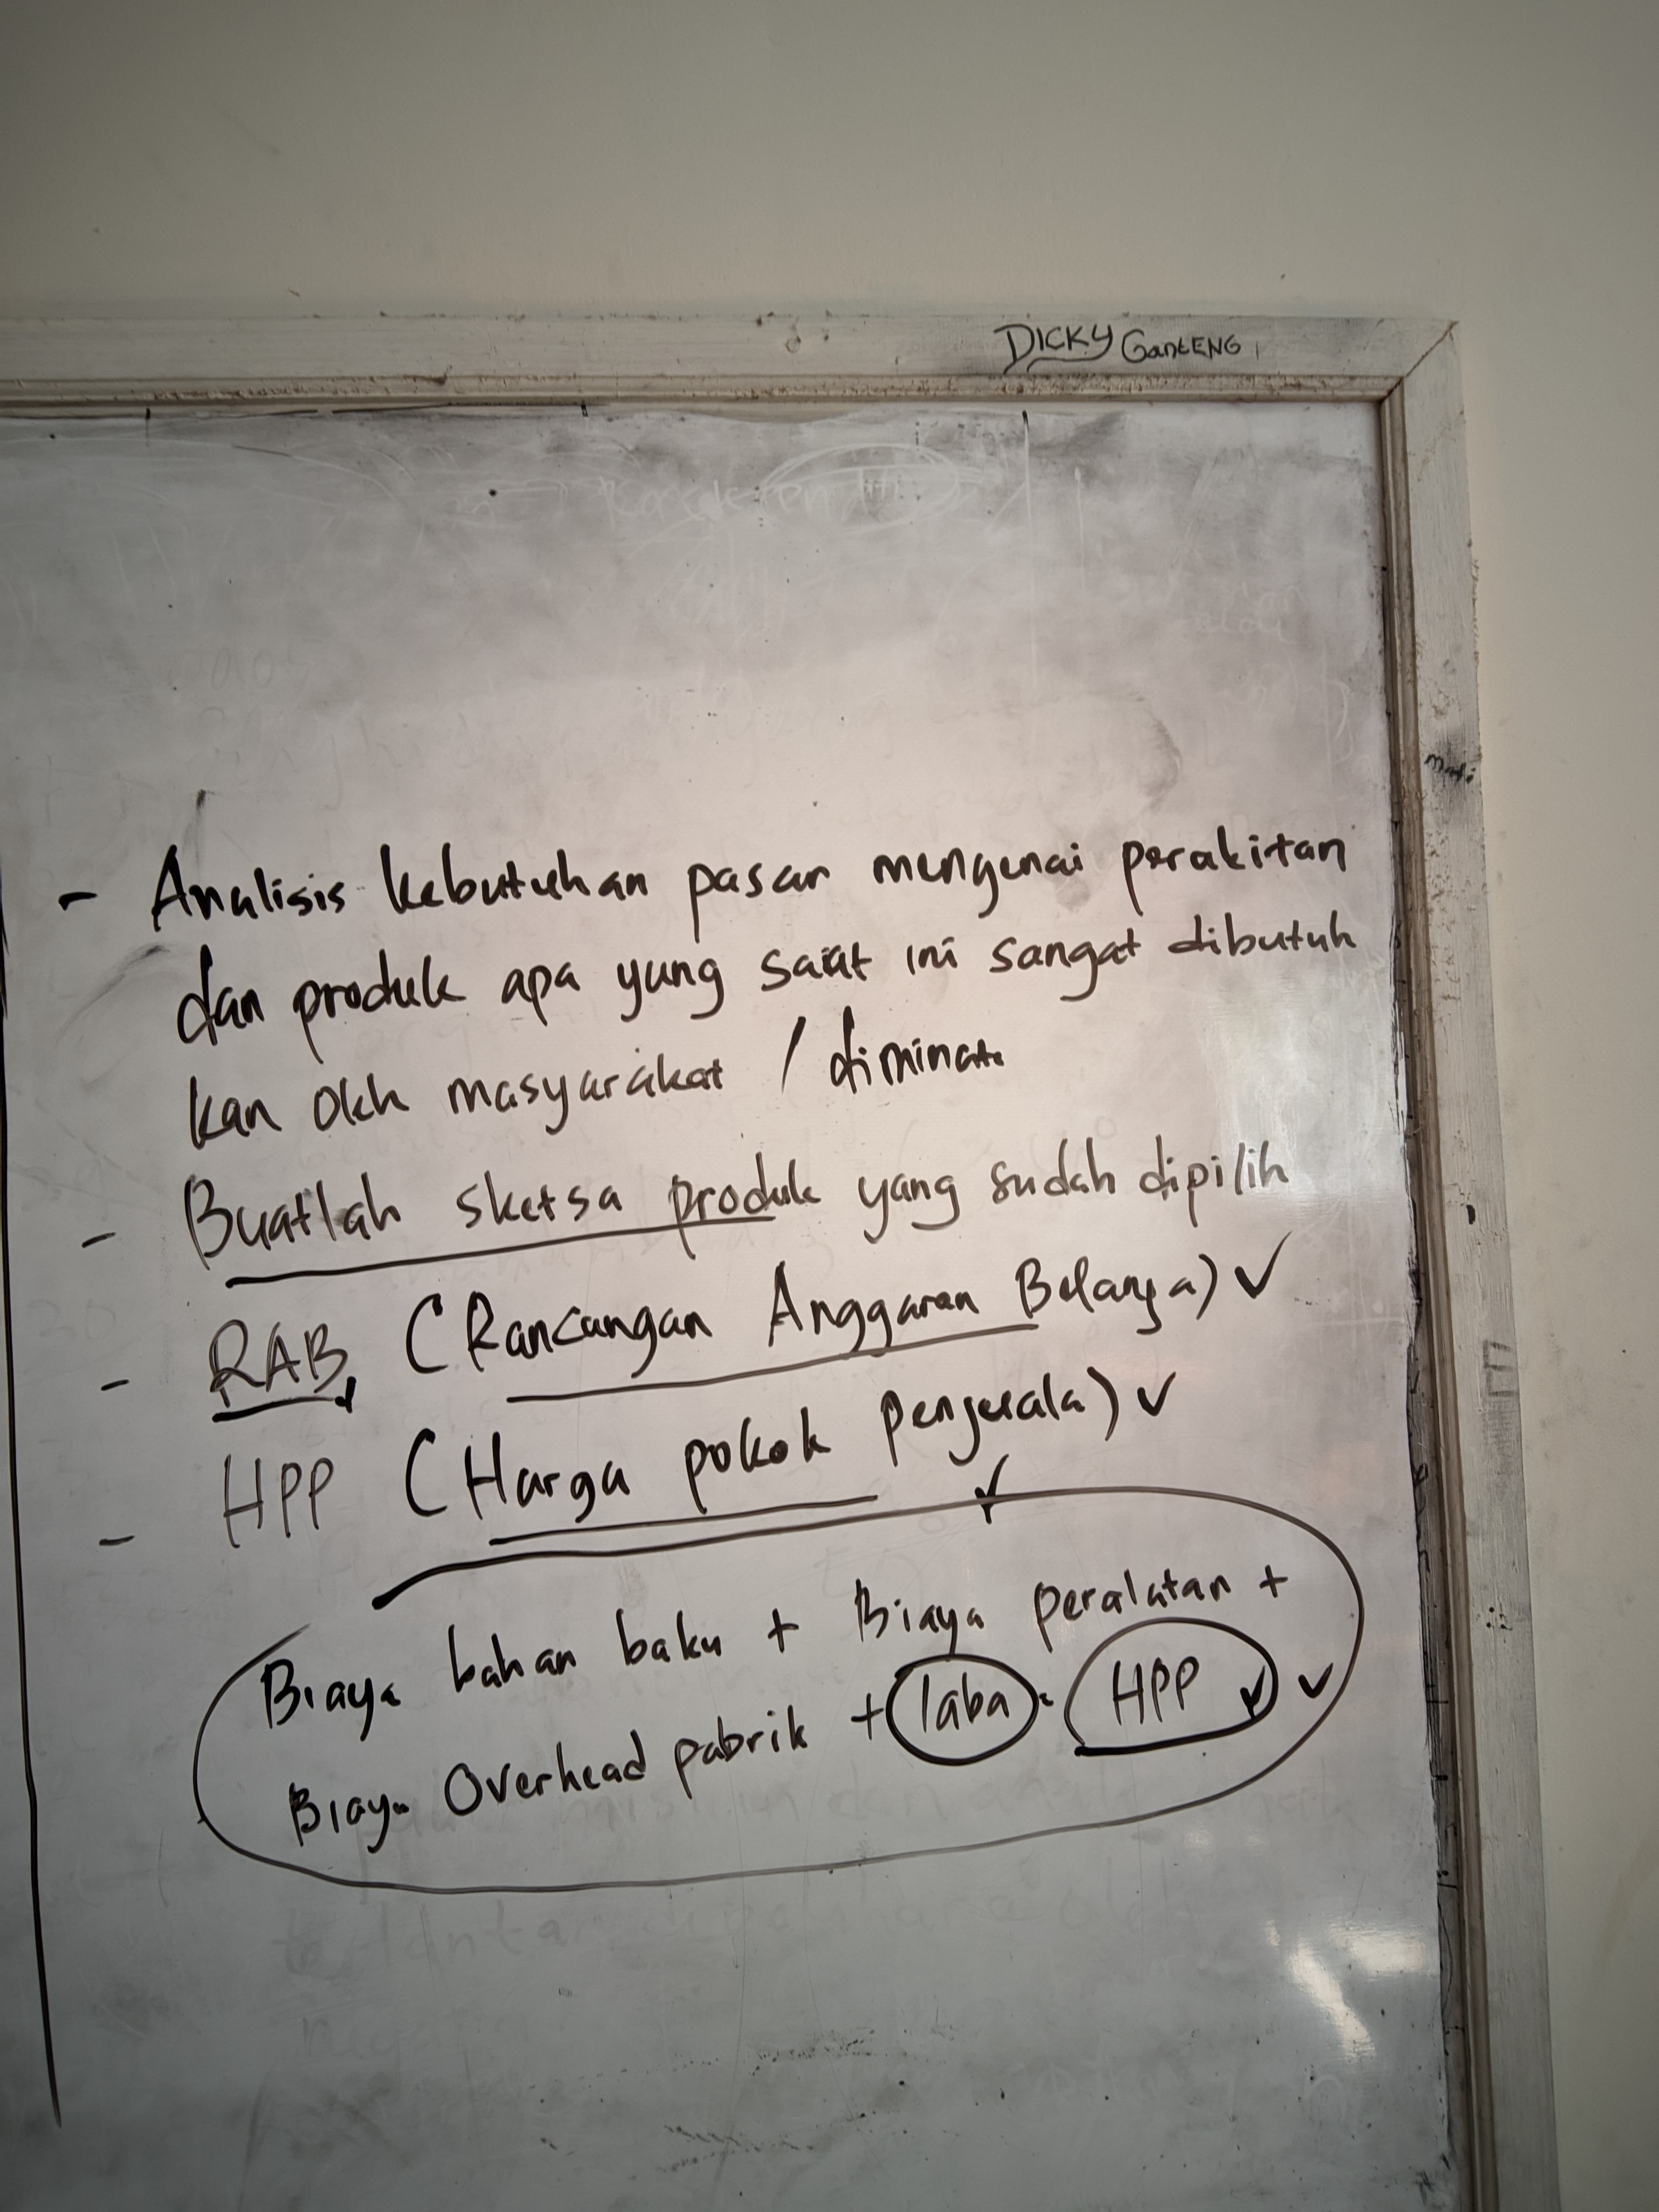 DICKY GantENG
- Analisis kebutuhan pasar mengenai perakitan
dan produk apa yang saat ini sangat dibutuh
kan oleh masyarakat / diminati
- Buatlah sketsa produk yang sudah dipilih
- RAB (Rancangan Anggaran Belanja) ✓
- HPP (Harga pokok penjuala) ✓
Biaya bahan baku + Biaya peralatan +
Biaya Overhead pabrik + laba = HPP ✓ ✓